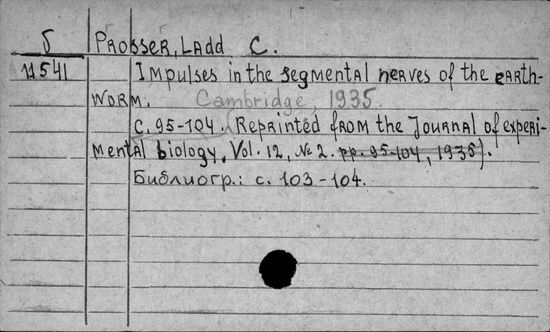 Б PROSSER, LAdd C.
И541 IMPULSES in the segmental neRves of the eARTH-
WORM. Cambridge, 1935.
C. 95-104. (RepRinted fROM the JouRnAl of expeRi-
mentAl biology, Vol. 12, № 2. pp. 95-104, 1935).
Библиогр.: с. 103-104.